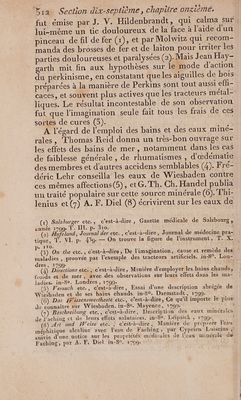 512 Section dix-septième, chapitre onzième.
fut émise par J. V. Hildenbrandt, qui calma sur
lui-même un tic douloureux de la face à l'aide d'un
pinceau de fil de fer (1), et par Molwitz qui recom-
manda des brosses de fer et de laiton pour irriter les
parties douloureuses et paralysées (2). Mais Jean Hay-
garth mit fin aux hypothèses sur le mode d'action
du perkinisme, en constatant que les aiguilles de bois
préparées à la manière de Perkins sont tout aussi effi-
caces, et souvent plus actives que les tracteurs métal-
liques. Le résultat incontestable de son observation
fut que l'imagination seule fait tous les frais de ces
sortes de cures (3).
A l'égard de l'emploi des bains et des eaux miné-
rales, Thomas Reid donna un très-bon ouvrage sur
les effets des bains de mer, notamment dans les cas
de faiblesse générale, de rhumatismes, d'œdématie
des membres et d'autres accidens semblables (4). Fré-
déric Lehr conseilla les eaux de Wiesbaden contre
ces mêmes affections (5), et G. Th. Ch. Handel publia
un traité populaire sur cette source minérale (6). Thi-
lenius et (7) A. F. Diel (8) écrivirent sur les eaux de
(1) Salzburger etc., c'est-à-dire, Gazette médicale de Salzbourg,
année 1799. T. III. p. 310.
(2) Hufeland, Journal der etc., c'est-à-dire, Journal de médecine pra-
tique, T. VI. p. 439. — On trouve la figure de l'instrument, T. X.
p. 170.
(3) On the etc., c'est-à-dire, De l'imagination, cause et remède des
maladies, prouvée par l'exemple des tracteurs artificiels. in-8°. Lon-
dres, 1799.
(4) Directions etc., c'est-à-dire, Manière d'employer les bains chauds,
froids et de mer, avec des observations sur leurs effets dans les ma-
ladies. in-8°. Londres, 1799.
(5) Versuch etc., c'est-à-dire, Essai d'une description abrégée de
Wiesbaden et de ses bains chauds. in-8°. Darmstadt, 1799.
(6) Das Wissenswertheste etc., c'est-à-dire, Ce qu'il importe le plus
de connaître sur Wisbaden. in-8°. Mayence, 1799.
(7) Beschreibung etc., c'est-à-dire, Description des eaux minérales
de Faching et de leurs effets salutaires. in-8°. Léipsick, 1799.
(8) Art und Weise etc., c'est-à-dire, Manière de préparer l'air
méphitique alcalisé avec l'eau de Faching, par Cyprien Luiscius;
suivie d'une notice sur les propriétés médicales de l'eau minérale de
Faching, par A. F. Diel in-8°. 1799.